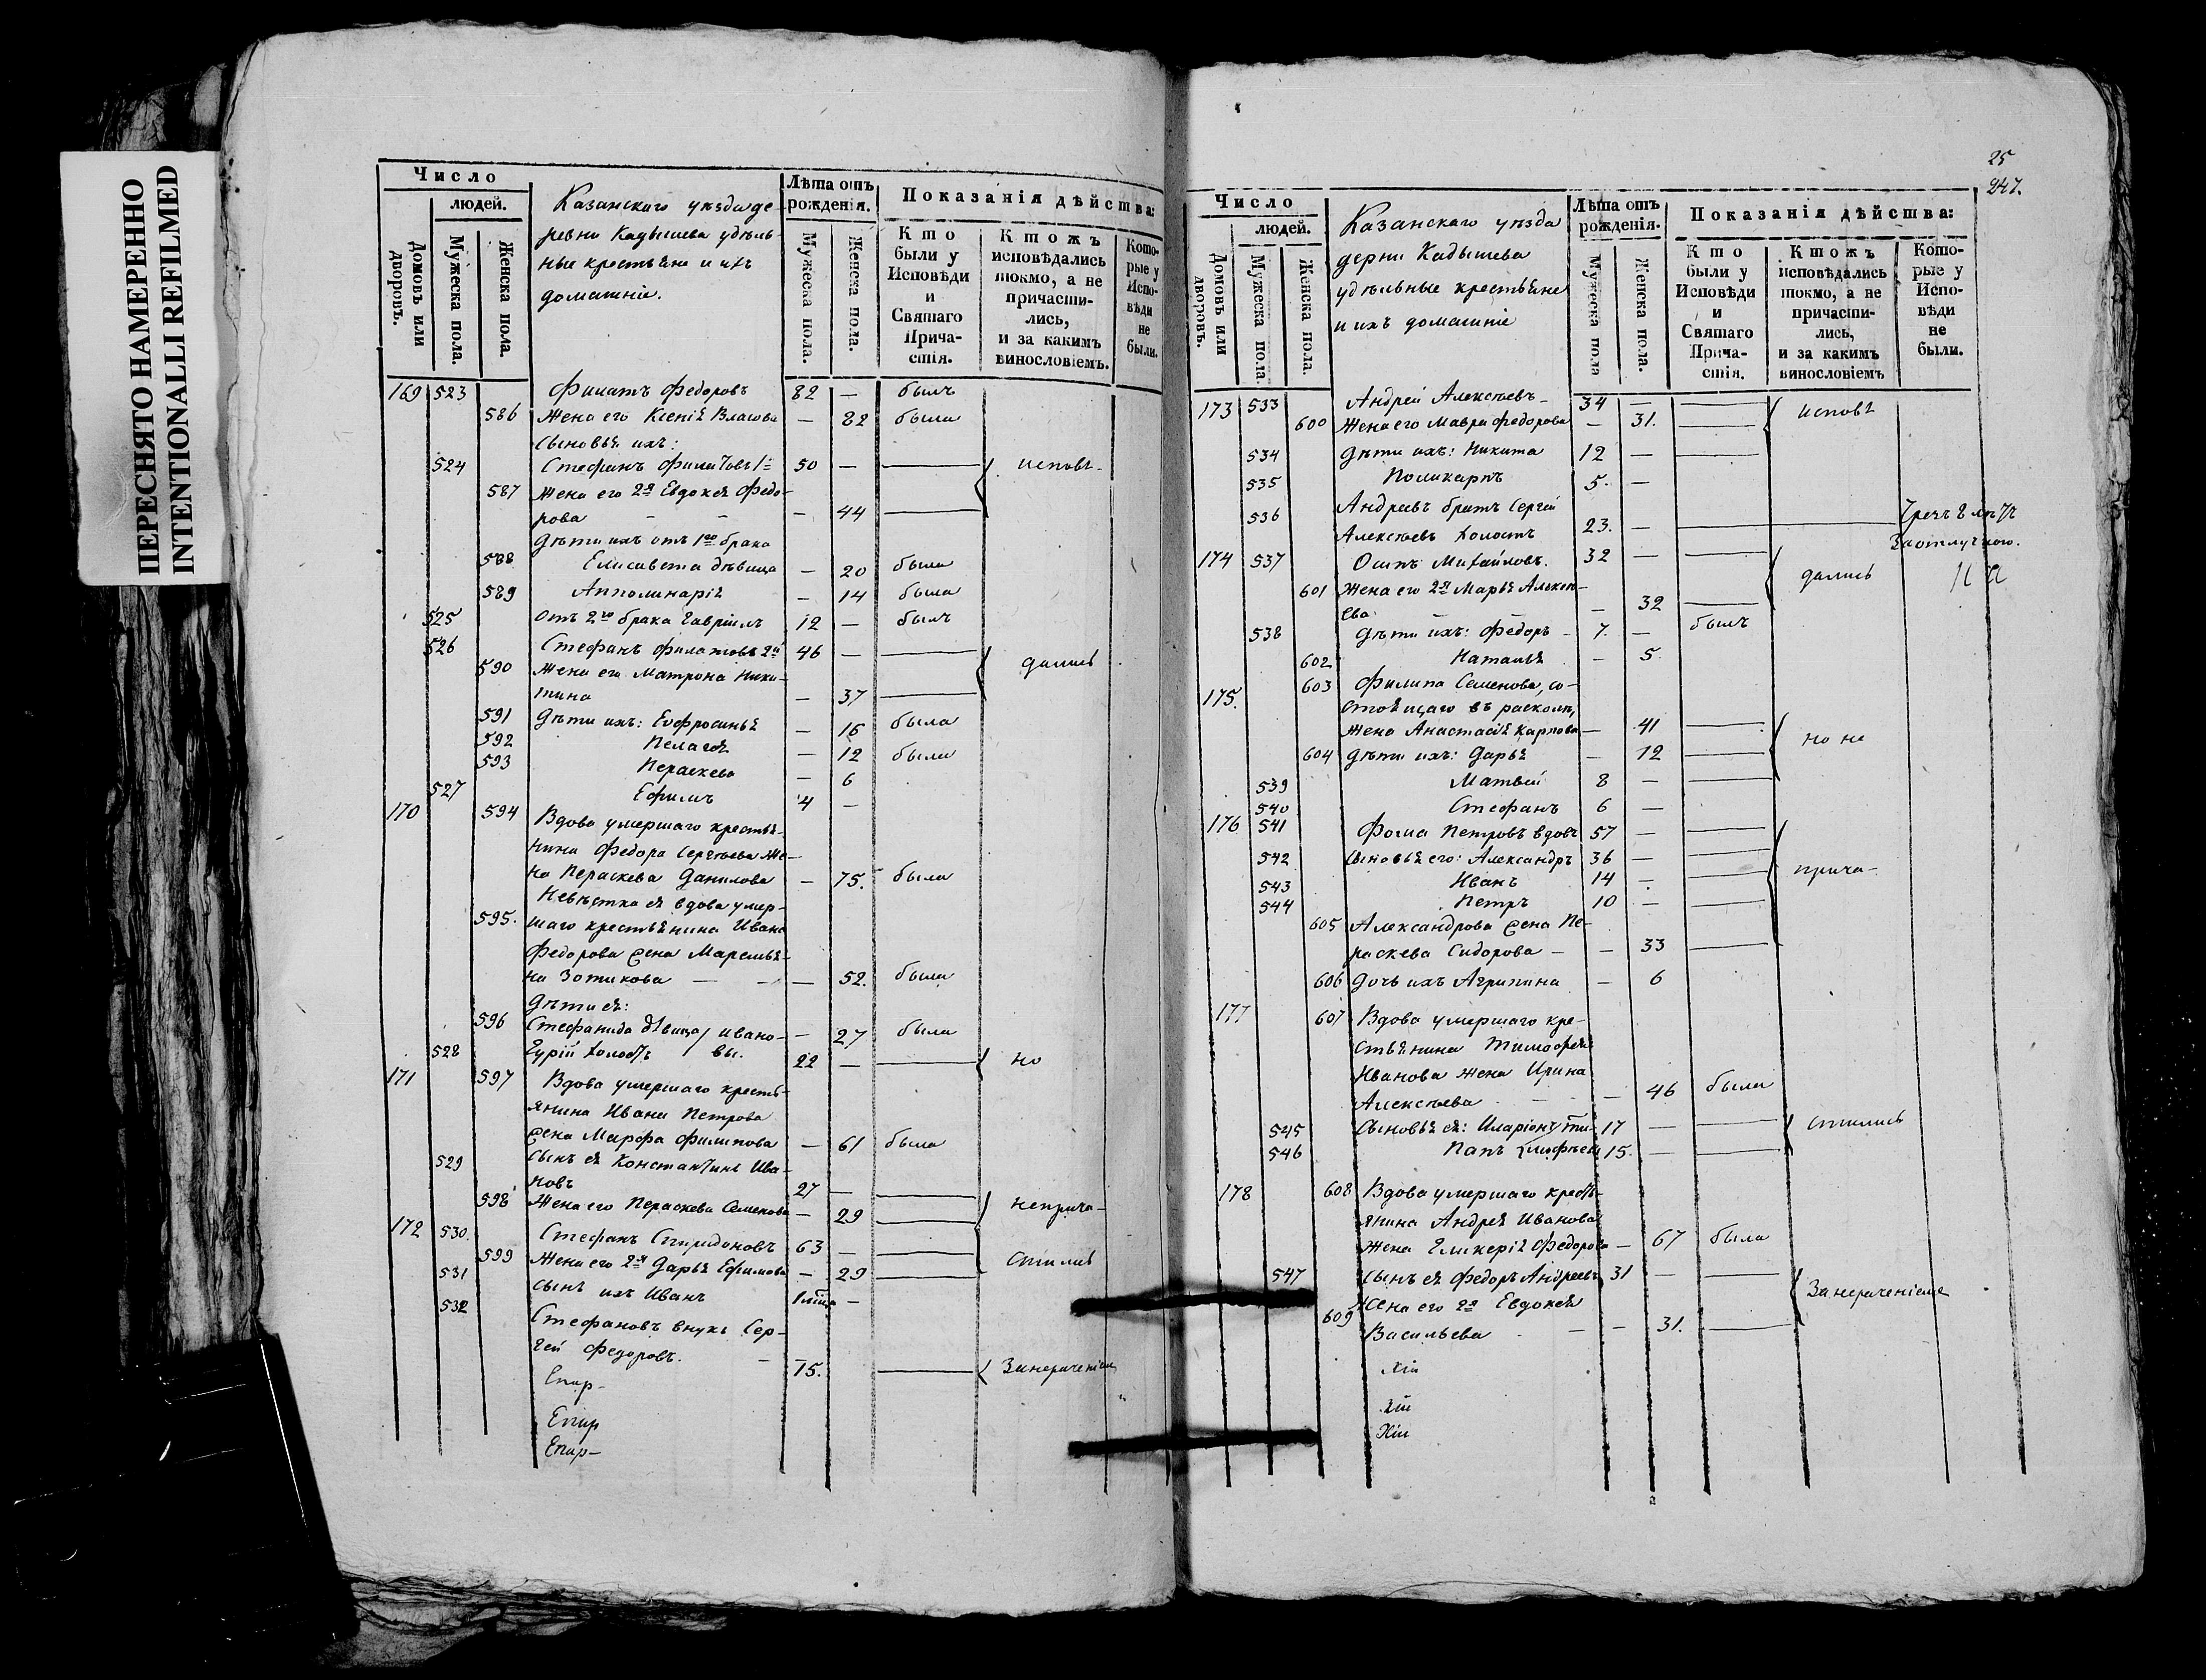 ПЕРЕСНЯТО НАМЕРЕННО
INTENTIONALLI REFILMED
Число
людей.
Домовъ или дворовъ.
Мужеска пола.
Женска пола.
Казанскаго уѣзда де-
ревни Кадышева удѣль-
ные крестьяне и ихъ
домашніе.
Лѣта отъ рожденія.
Мужеска пола.
Женска пола.
Показанія дѣйства:
Кто были у Исповѣди и Святаго Прича-стія.
Ктожъ исповѣдались токмо, а не причасти-лись, и за какимъ винословіемъ.
Кото-рые у Испо-вѣди не были.
169 523 Филатъ Федоровъ 82 — былъ
586 Жена его Ксенія Власова — 82 была
Сыновья ихъ:
524 Стефанъ Филатовъ 1й 50 — исповѣ-
587 Жена его 2я Евдокея Федо-
рова — 44
Дѣти ихъ отъ 1го брака
588 Елисавета дѣвица — 20 была
589 Апполинарія — 14 была
525 Отъ 2го брака Гавріилъ 12 — былъ
526 Стефанъ Филатовъ 2й 46 —
590 Жена его Матрона Ники- дались
тина — 37
591 Дѣти ихъ: Евфросинья — 16 была
592 Пелагея — 12 была
593 Параскева — 6
527 Ефимъ 4 —
170 594 Вдова умершаго крестья-
нина Федора Сергѣева же-
на Параскева Данилова — 75. была
Невѣстка ея вдова умер-
595. шаго крестьянина Ивана
Федорова жена Маремья-
на Зотикова — 52. была
Дѣти ея:
596 Стефанида дѣвица / Ивано- — 27 была
528 Гурій холостъ / вы. 22 — но
171 597 Вдова умершаго кресть-
янина Ивана Петрова
жена Марфа Филипова — 61 была
529 Сынъ ея Константинъ Ива-
новъ 27 —
598 Жена его Параскева Семенова — 29 неприча-
172 530. Стефанъ Спиридоновъ 63 —
599 Жена его 2я Дарья Ефимова — 29 стились
531 Сынъ ихъ Иванъ 1 лѣта —
532 Стефановъ внукъ Сер-
гей Федоровъ. 15. — За нерачениемъ
Епар-
Епар
Епар-
25
247.
Число
людей.
Домовъ или дворовъ.
Мужеска пола.
Женска пола.
Казанскаго уѣзда
дерни Кадышева
удѣльные крестьяне
и ихъ домашніе
Лѣта отъ рожденія.
Мужеска пола
Женска пола.
Показанія дѣйства:
Кто были у Исповѣди и Святаго Прича-стія.
Ктожъ исповѣдались токмо, а не причасти-лись, и за какимъ винословіемъ
Кото-рые у Испо-вѣди не были.
173 533 Андрей Алексѣевъ 34 — исповѣ
600 Жена его Мавра Федорова — 31.
534 Дѣти ихъ: Никита 12 —
535 Поликарпъ 5. —
536 Андреевъ братъ Сергей
Алексѣевъ холостъ 23. —
За отлучкою.
174 537 Осипъ Михайловъ. 32 —
601 Жена его 2я Марья Алексѣ- дались
ева — 32
538 Дѣти ихъ: Федоръ 7. — былъ
602 Наталья — 5
175. 603 Филипа Семенова, со-
стоящаго въ расколѣ,
жена Анастасія Карпова — 41
604 Дѣти ихъ: Дарья — 12 но не
539 Матвей 8 —
540 Стефанъ 6 —
176 541 Фома Петровъ вдовъ 57 —
542 Сыновья его: Александръ 36 —
543 Иванъ 14 — прича-
544 Петръ 10 —
605 Александрова жена Пе-
раскева Сидорова — 33
606 Дочь ихъ Агрипина — 6
177 607 Вдова умершаго кре-
стьянина Тимофея
Иванова жена Ирина
Алексѣева — 46 была
545 Сыновья ея: Иларіонъ Ти- 17 — стились
546 Папъ мофѣевы 15. —
178 608 Вдова умершаго кресть-
янина Андрея Иванова
жена Гликерія Федорова — 67 была
547 Сынъ ея Федоръ Андреевъ 31 —
609 Жена его 2я Евдокея За нераченіемъ
Васильева — 31.
Хіи
Хіи
Хіи